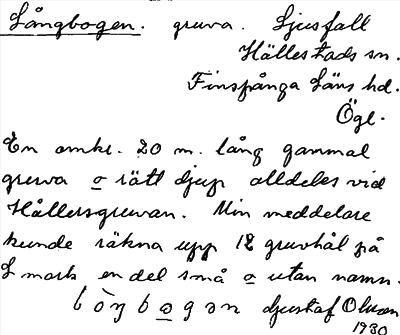 Långbogen. gruva. Ljusfall
Hällestads sn.
Finspånga Läns hd.
Ögl.
En omkr. 20 m. lång gammal
gruva o rätt djup alldeles vid
Hållersgruvan. Min meddelare
kunde räkna upp 18 gruvhål på
L mark en del små o utan namn.
Gustaf Olsson
1930